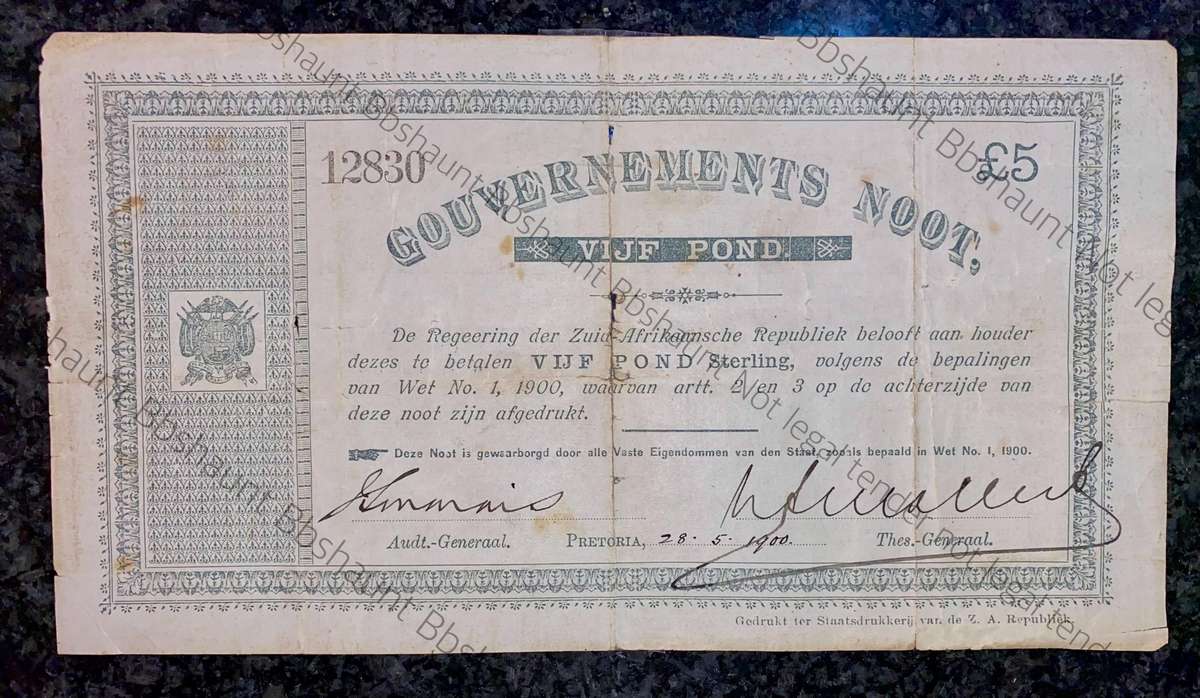 12830
£5
GOUVERNEMENTS NOOT,
VIJF POND.
De Regeering der Zuid-Afrikaansche Republiek belooft aan houder
dezes te betalen VIJF POND Sterling, volgens de bepalingen
van Wet No. 1, 1900, waarvan artt. 2 en 3 op de achterzijde van
deze noot zijn afgedrukt.
Deze Noot is gewaarborgd door alle Vaste Eigendommen van den Staat, zooals bepaald in Wet No. 1, 1900.
Audt.-Generaal.
PRETORIA, 28.5.1900.
Thes.-Generaal.
Gedrukt ter Staatsdrukkerij van de Z. A. Republiek.
Bbshaunt Bbshaunt Bbshaunt Not legal tender Not legal tender